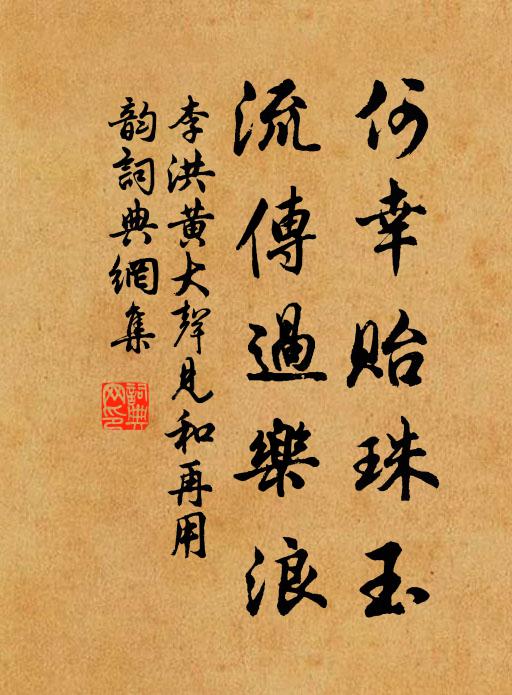 何幸貽珠玉
流傳過樂浪
李洪黃大聲見和再用
韵詞典網集
詞典
网印